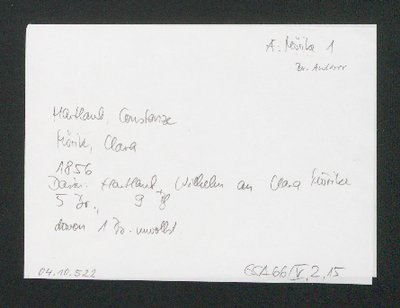 A: Mörike 1
Br. Anderer
Hartlaub, Constanze
Mörike, Clara
1856
Darin: Hartlaub, Wilhelm an Clara Mörike
5 Br., 9 S
davon 1 Br. unvollst.
04.10.522